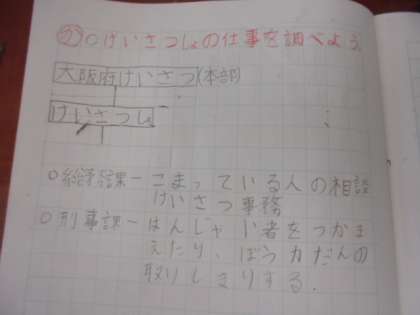 め ○けいさつしょの仕事を調べよう。
大阪府けいさつ(本部)
けいさつしょ
○総務課ーこまっている人の相談
けいさつ事務
○刑事課ーはんざい者をつかま
えたり、ぼう力だんの
取りしまりする。